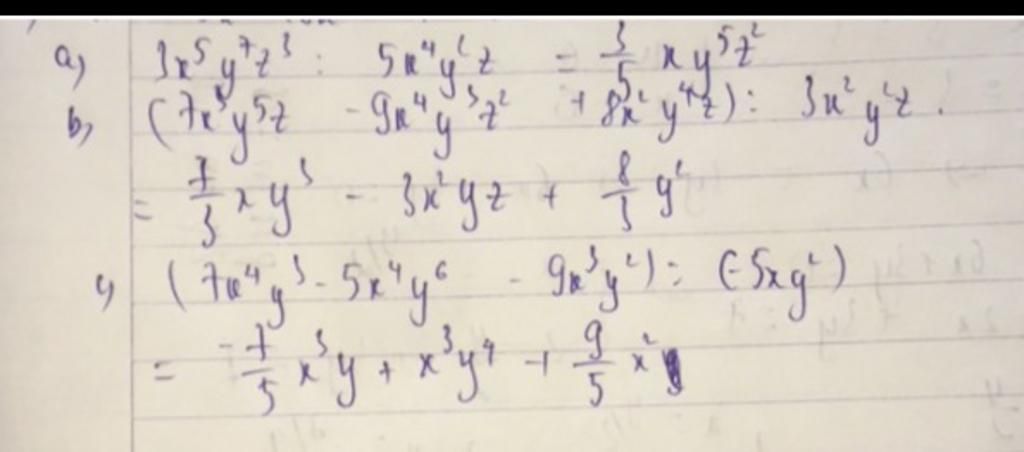 a, 3x⁵y⁷z³ : 5x⁴y²z = 3/5 xy⁵z²
b, (7x³y⁵z - 9x⁴y³z² + 8x²y⁴z) : 3x²y²z.
= 7/3 xy³ - 3x²yz + 8/3 y²
c, (7x⁴y³ - 5x⁴y⁶ - 9x³y²) : (-5xy²)
= -7/5 x³y + x³y⁴ + 9/5 x²